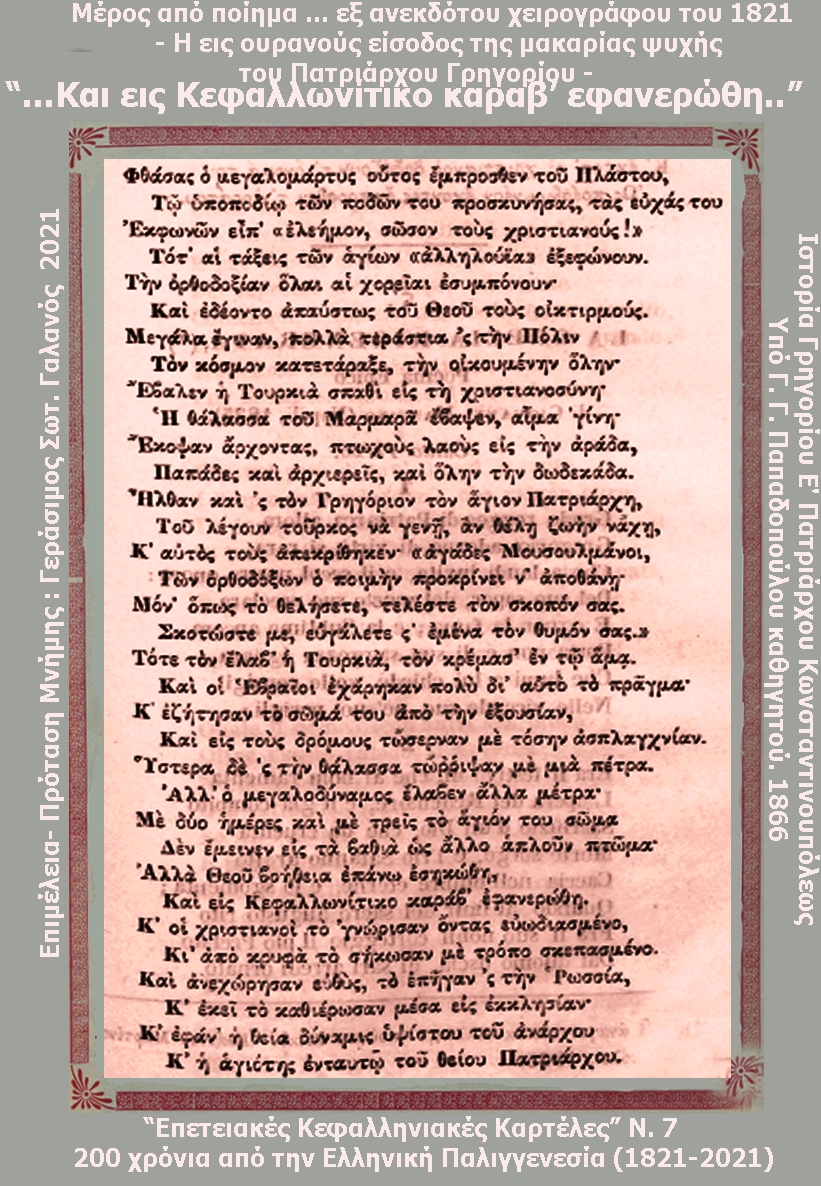 Μέρος από ποίημα ... εξ ανεκδότου χειρογράφου του 1821
- Η εις ουρανούς είσοδος της μακαρίας ψυχής
του Πατριάρχου Γρηγορίου -
“...Και εις Κεφαλλωνίτικο καράβ’ εφανερώθη..”
Φθάσας ὁ μεγαλομάρτυς οὗτος ἔμπροσθεν τοῦ Πλάστου,
Τῷ ὑποποδίῳ τῶν ποδῶν του προσκυνήσας, τὰς εὐχάς του
Ἐκφωνῶν εἶπ' «ἐλεήμον, σῶσον τοὺς χριστιανούς!»
Τότ' αἱ τάξεις τῶν ἁγίων «ἀλληλούϊα» ἐξεφώνουν.
Τὴν ὀρθοδοξίαν ὅλαι αἱ χορεῖαι ἐσυμπόνουν·
Καὶ ἐδέοντο ἀπαύστως τοῦ Θεοῦ τοὺς οἰκτιρμούς.
Μεγάλα ἔγιναν, πολλὰ τεράστια 'ς τὴν Πόλιν
Τὸν κόσμον κατετάραξε, τὴν οἰκουμένην ὅλην·
Ἔβαλεν ἡ Τουρκιὰ σπαθὶ εἰς τὴ χριστιανοσύνη·
Ἡ θάλασσα τοῦ Μαρμαρᾶ ἔβαψεν, αἷμα 'γίνη·
Ἔκοψαν ἄρχοντας, πτωχοὺς λαοὺς εἰς τὴν ἀράδα,
Παπάδες καὶ ἀρχιερεῖς, καὶ ὅλην τὴν δωδεκάδα.
Ἦλθαν καὶ 'ς τὸν Γρηγόριον τὸν ἅγιον Πατριάρχη,
Τοῦ λέγουν τοῦρκος νὰ γενῇ, ἂν θέλῃ ζωὴν νάχῃ,
Κ' αὐτὸς τοὺς ἀπεκρίθηκεν· «ἀγάδες Μουσουλμάνοι,
Τῶν ὀρθοδόξων ὁ ποιμὴν προκρίνει ν' ἀποθάνῃ·
Μόν' ὅπως τὸ θελήσετε, τελέστε τὸν σκοπόν σας.
Σκοτώστε με, εὐγάλετε ς' ἐμένα τὸν θυμόν σας.»
Τότε τὸν ἔλαβ' ἡ Τουρκιὰ, τὸν κρέμασ' ἐν τῷ ἅμα.
Καὶ οἱ Ἑβραῖοι ἐχάρηκαν πολὺ δι' αὐτὸ τὸ πρᾶγμα·
Κ' ἐζήτησαν τὸ σῶμά του ἀπὸ τὴν ἐξουσίαν,
Καὶ εἰς τοὺς δρόμους τὦσερναν μὲ τόσην ἀσπλαγχνίαν.
Ὕστερα δὲ 'ς τὴν θάλασσα τὤρριψαν μὲ μιὰ πέτρα.
Ἀλλ' ὁ μεγαλοδύναμος ἔλαβεν ἄλλα μέτρα·
Μὲ δύο ἡμέρες καὶ μὲ τρεῖς τὸ ἅγιόν του σῶμα
Δὲν ἔμεινεν εἰς τὰ βαθιὰ ὡς ἄλλο ἁπλοῦν πτῶμα·
Ἀλλὰ Θεοῦ βοήθεια ἐπάνω ἐσηκώθη,
Καὶ εἰς Κεφαλλωνίτικο καράβ' ἐφανερώθη.
Κ' οἱ χριστιανοὶ τὸ 'γνώρισαν ὄντας εὐωδιασμένο,
Κι' ἀπὸ κρυφὰ τὸ σήκωσαν μὲ τρόπο σκεπασμένο.
Καὶ ἀνεχώρησαν εὐθὺς, τὸ ἐπῆγαν 'ς τὴν Ῥωσσία,
Κ' ἐκεῖ τὸ καθιέρωσαν μέσα εἰς ἐκκλησίαν·
Κ' ἐφάν' ἡ θεία δύναμις ὑψίστου τοῦ ἀνάρχου
Κ' ἡ ἁγιότης ἐνταυτῷ τοῦ θείου Πατριάρχου.
Επιμέλεια- Πρόταση Μνήμης : Γεράσιμος Σωτ. Γαλανός 2021
Ιστορία Γρηγορίου Ε' Πατριάρχου Κωνσταντινουπόλεως
Υπό Γ. Γ. Παπαδοπούλου καθηγητού. 1866
“Επετειακές Κεφαλληνιακές Καρτέλες” Ν. 7
200 χρόνια από την Ελληνική Παλιγγενεσία (1821-2021)